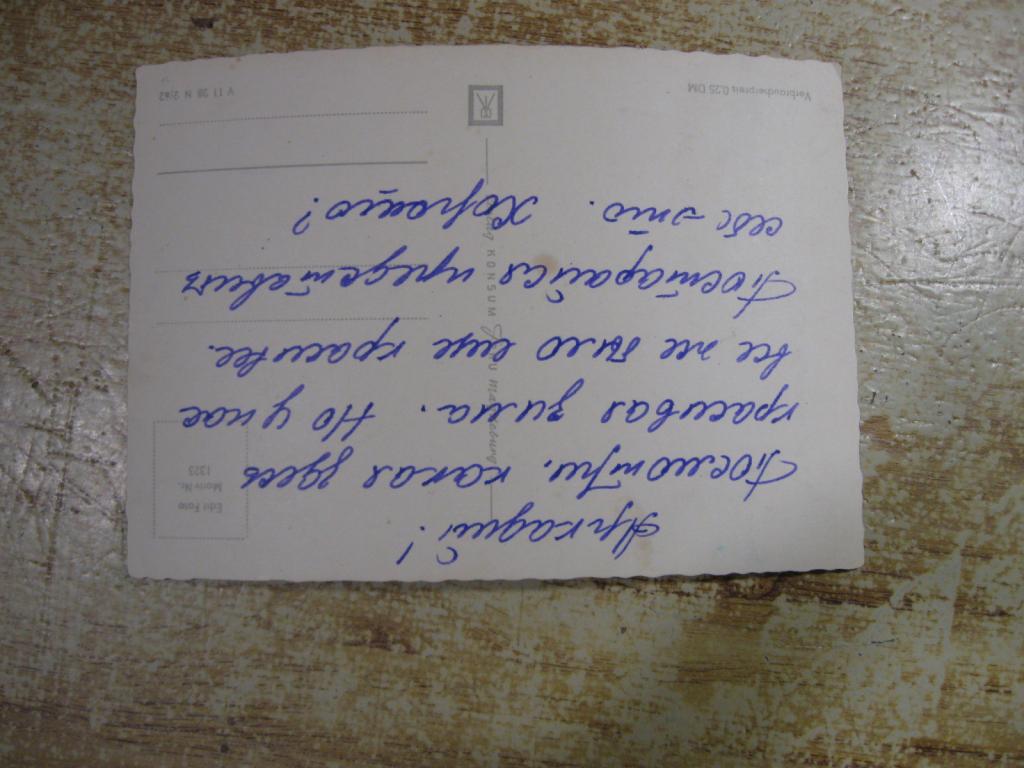 Аркадий!
Посмотри. какая здесь
красивая зима. Но у нас
все же было еще красивее.
Постарайся представить
себе это. Хорошо?
Edit Foto
Motiv-Nr.
1323
KONSUM
V 11 28 N 2/62
Verbraucherpreis 0,25 DM